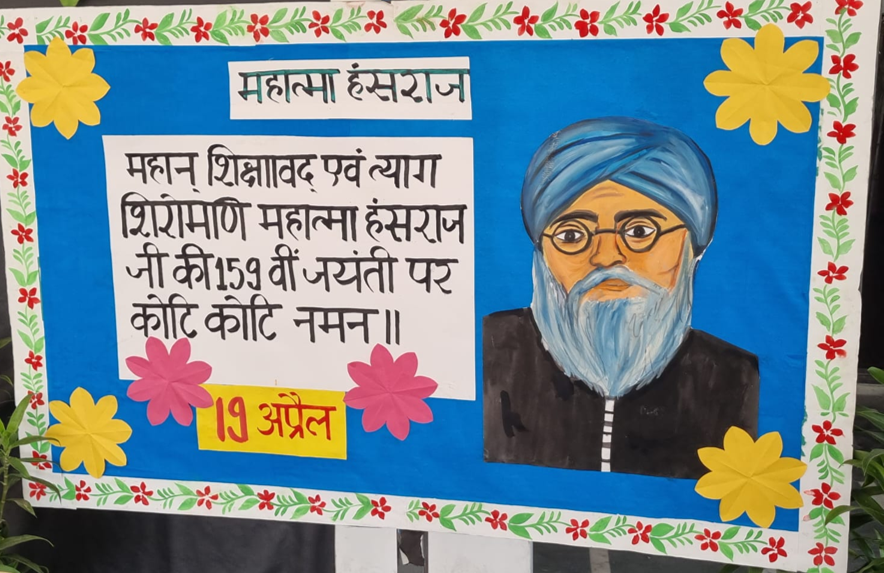 महात्मा हंसराज
महान् शिक्षाावद् एवं त्याग
शिरोमणि महात्मा हंसराज
जी की 159 वीं जयंती पर
कोटि कोटि नमन॥
19 अप्रैल